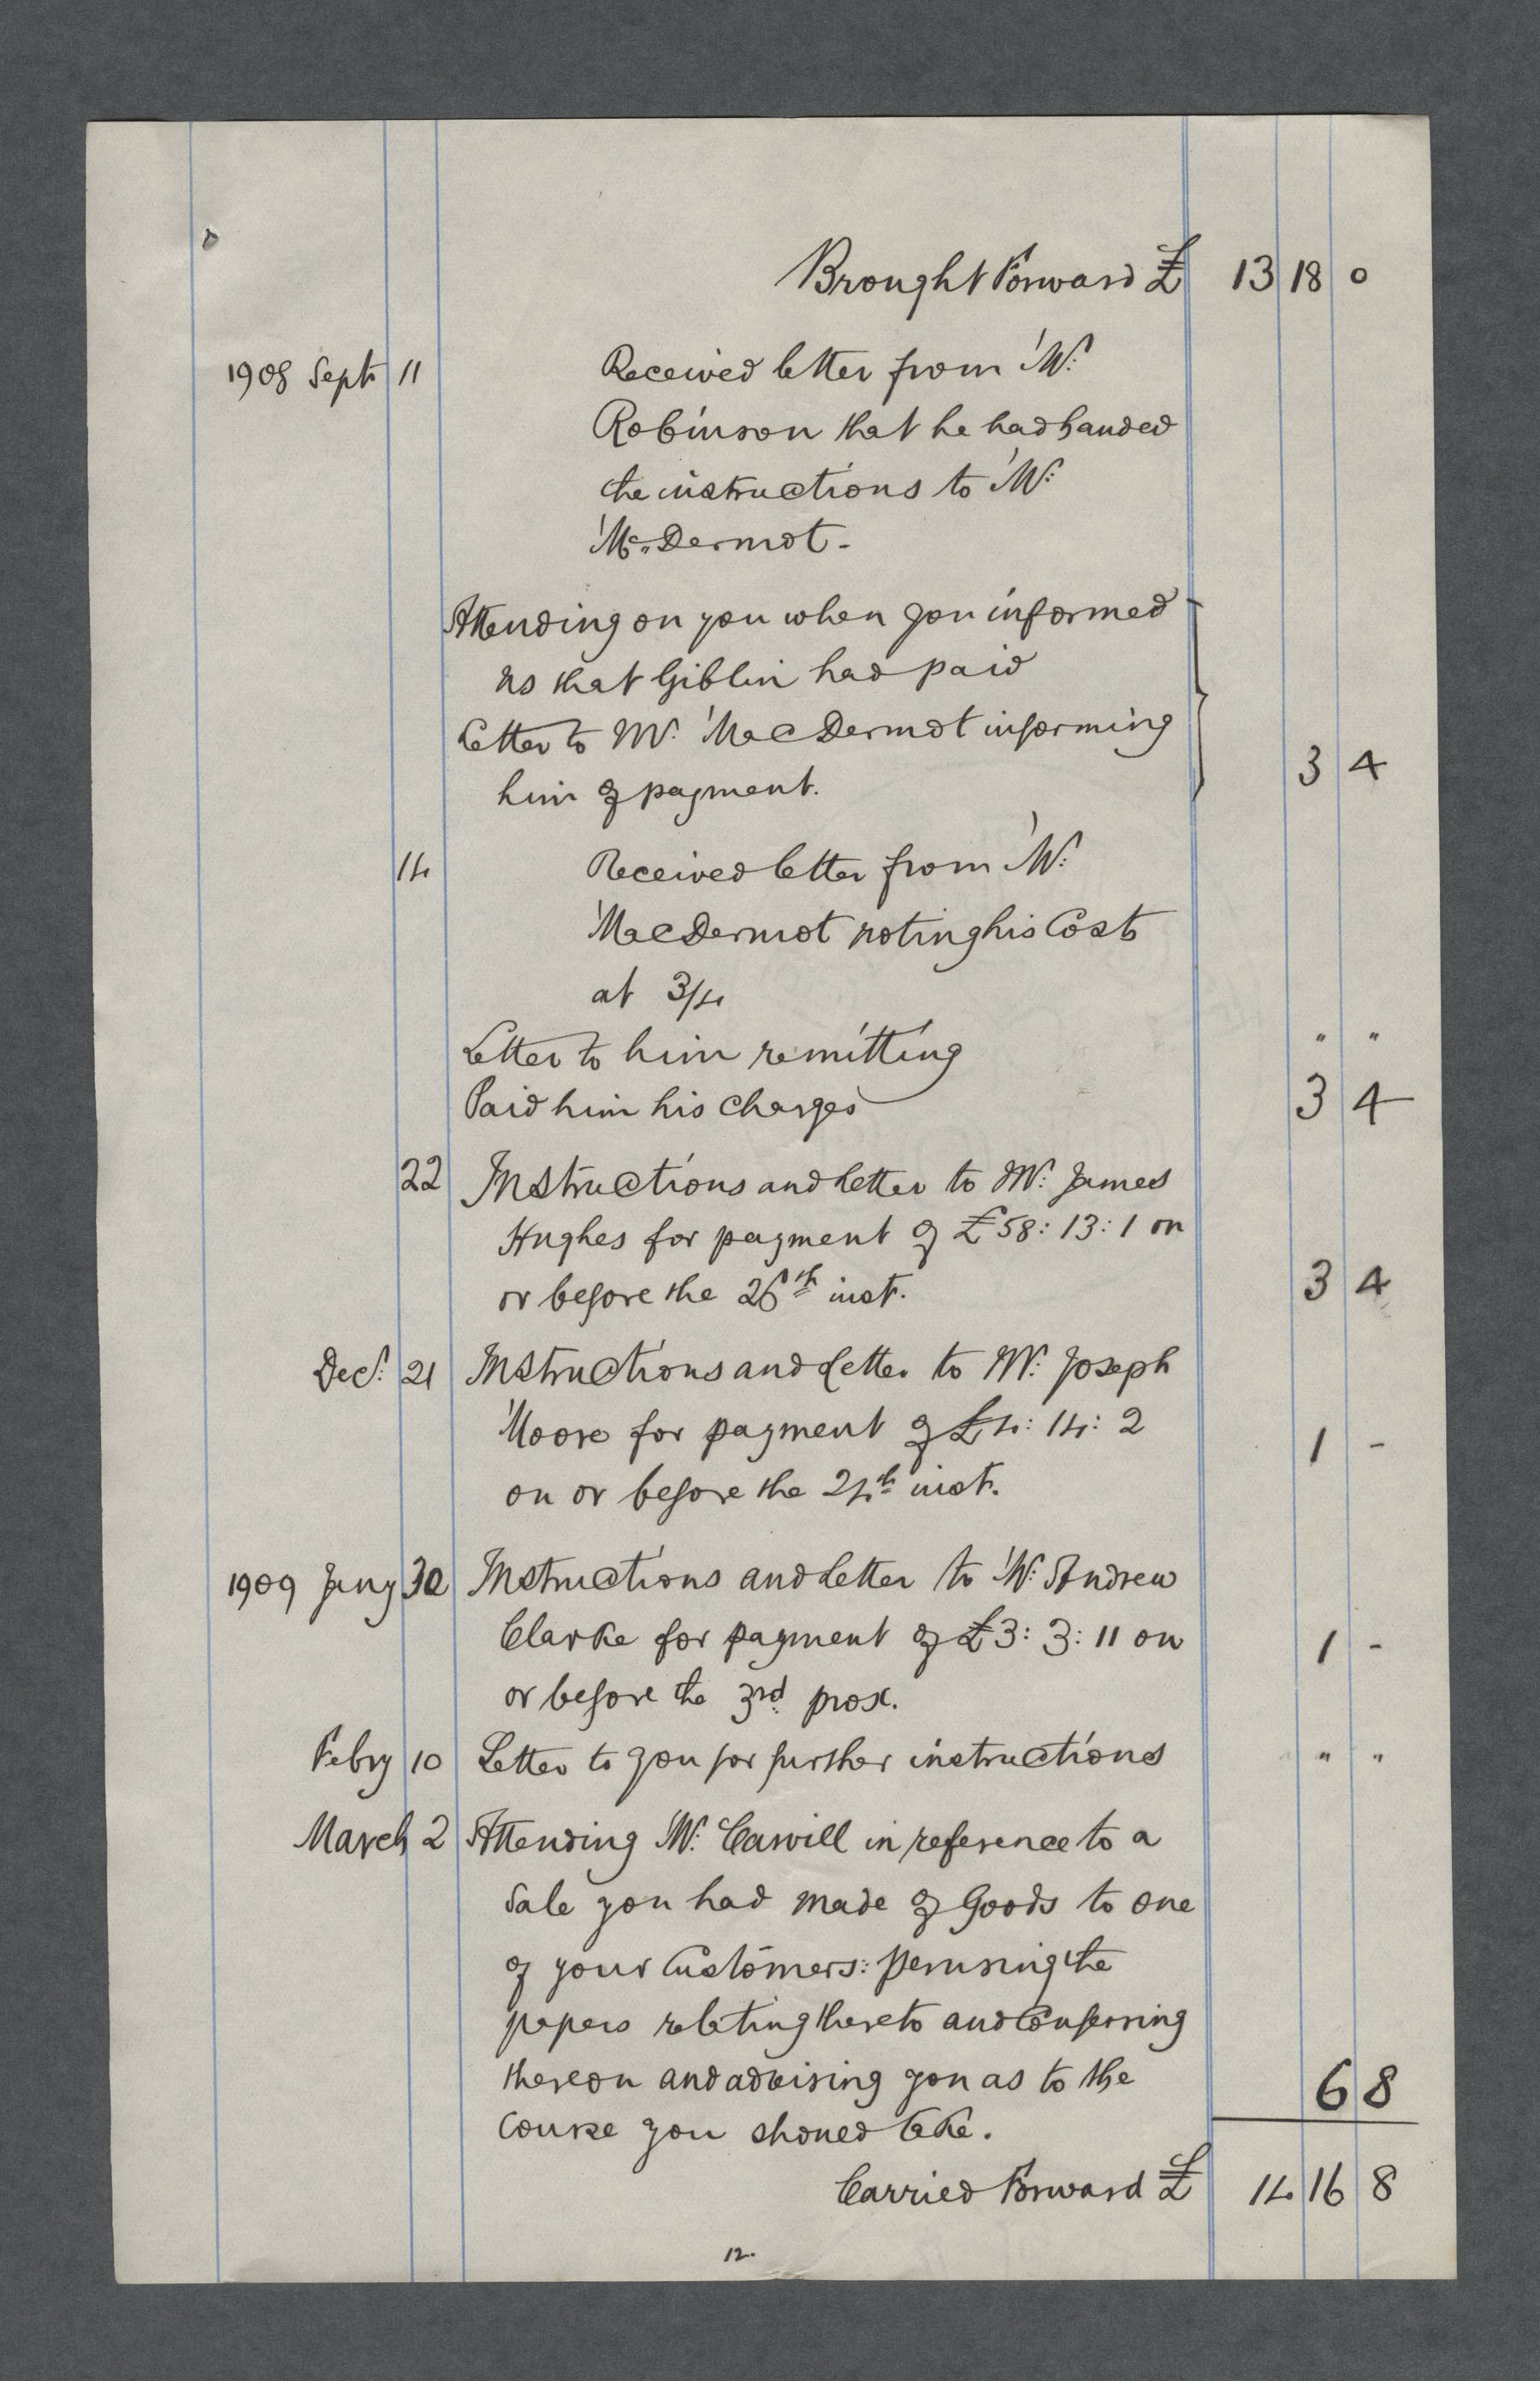 Brought Forward £ 13 18 0
1908 Sept 11 Received letter from Mr.
Robinson that he had handed
the instructions to Mr.
McDermot.
Attending on you when you informed
us that Giblin had paid
Letter to Mr. MacDermot informing
him of payment. 3 4
14 Received letter from Mr.
MacDermot noting his Costs
at 3/4
Letter to him remitting " "
Paid him his charges 3 4
22 Instructions and letter to Mr. James
Hughes for payment of £58:13:1 on
or before the 26th inst. 3 4
Decr. 21 Instructions and letter to Mr. Joseph
Moore for payment of £4:14:2 1 -
on or before the 24th inst.
1909 Jany 30 Instructions and letter to Mr. Andrew
Clarke for payment of £3:3:11 on 1 -
or before the 3rd prox.
Febry 10 Letter to you for further instructions " "
March 2 Attending Mr. Carvill in reference to a
Sale you had made of Goods to one
of your Customers: perusing the
papers relating thereto and Conferring
thereon and advising you as to the 6 8
Course you should take.
Carried Forward £ 14 16 8
12.